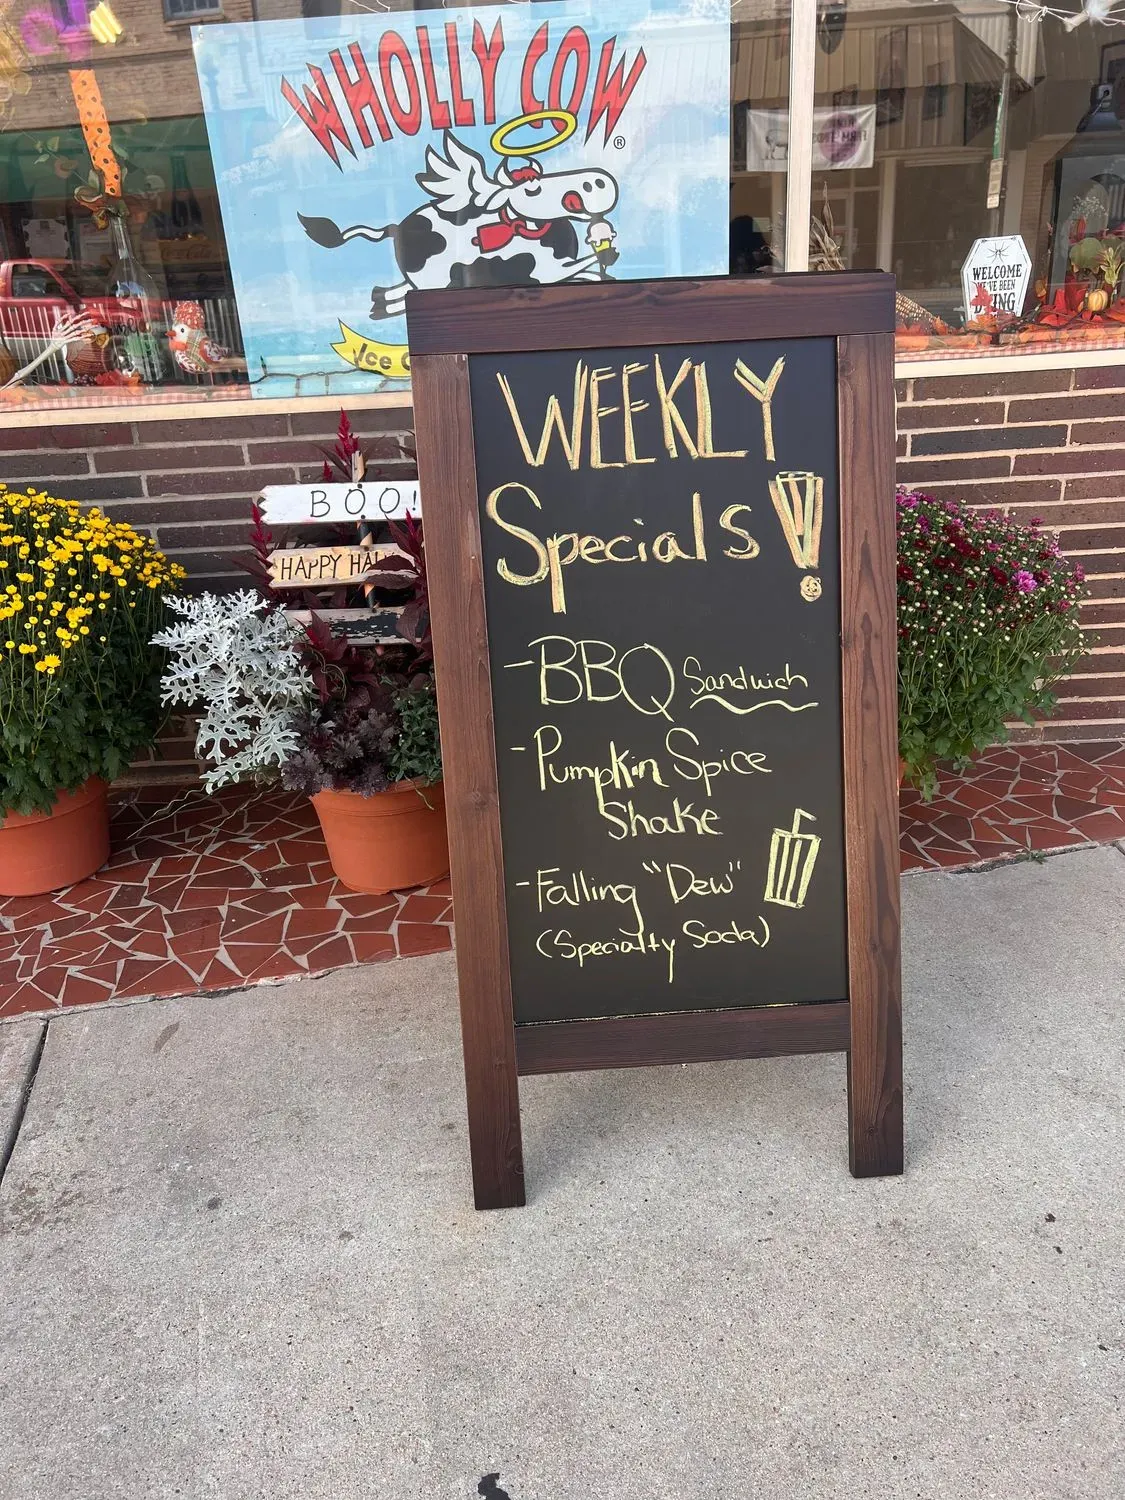 WHOLLY COW
®
Ice
WELCOME
WE'VE BEEN
BOO!
HAPPY
WEEKLY
Specials!
-BBQ Sandwich
-Pumpkin Spice
Shake
-Falling "Dew"
(Specialty Soda)